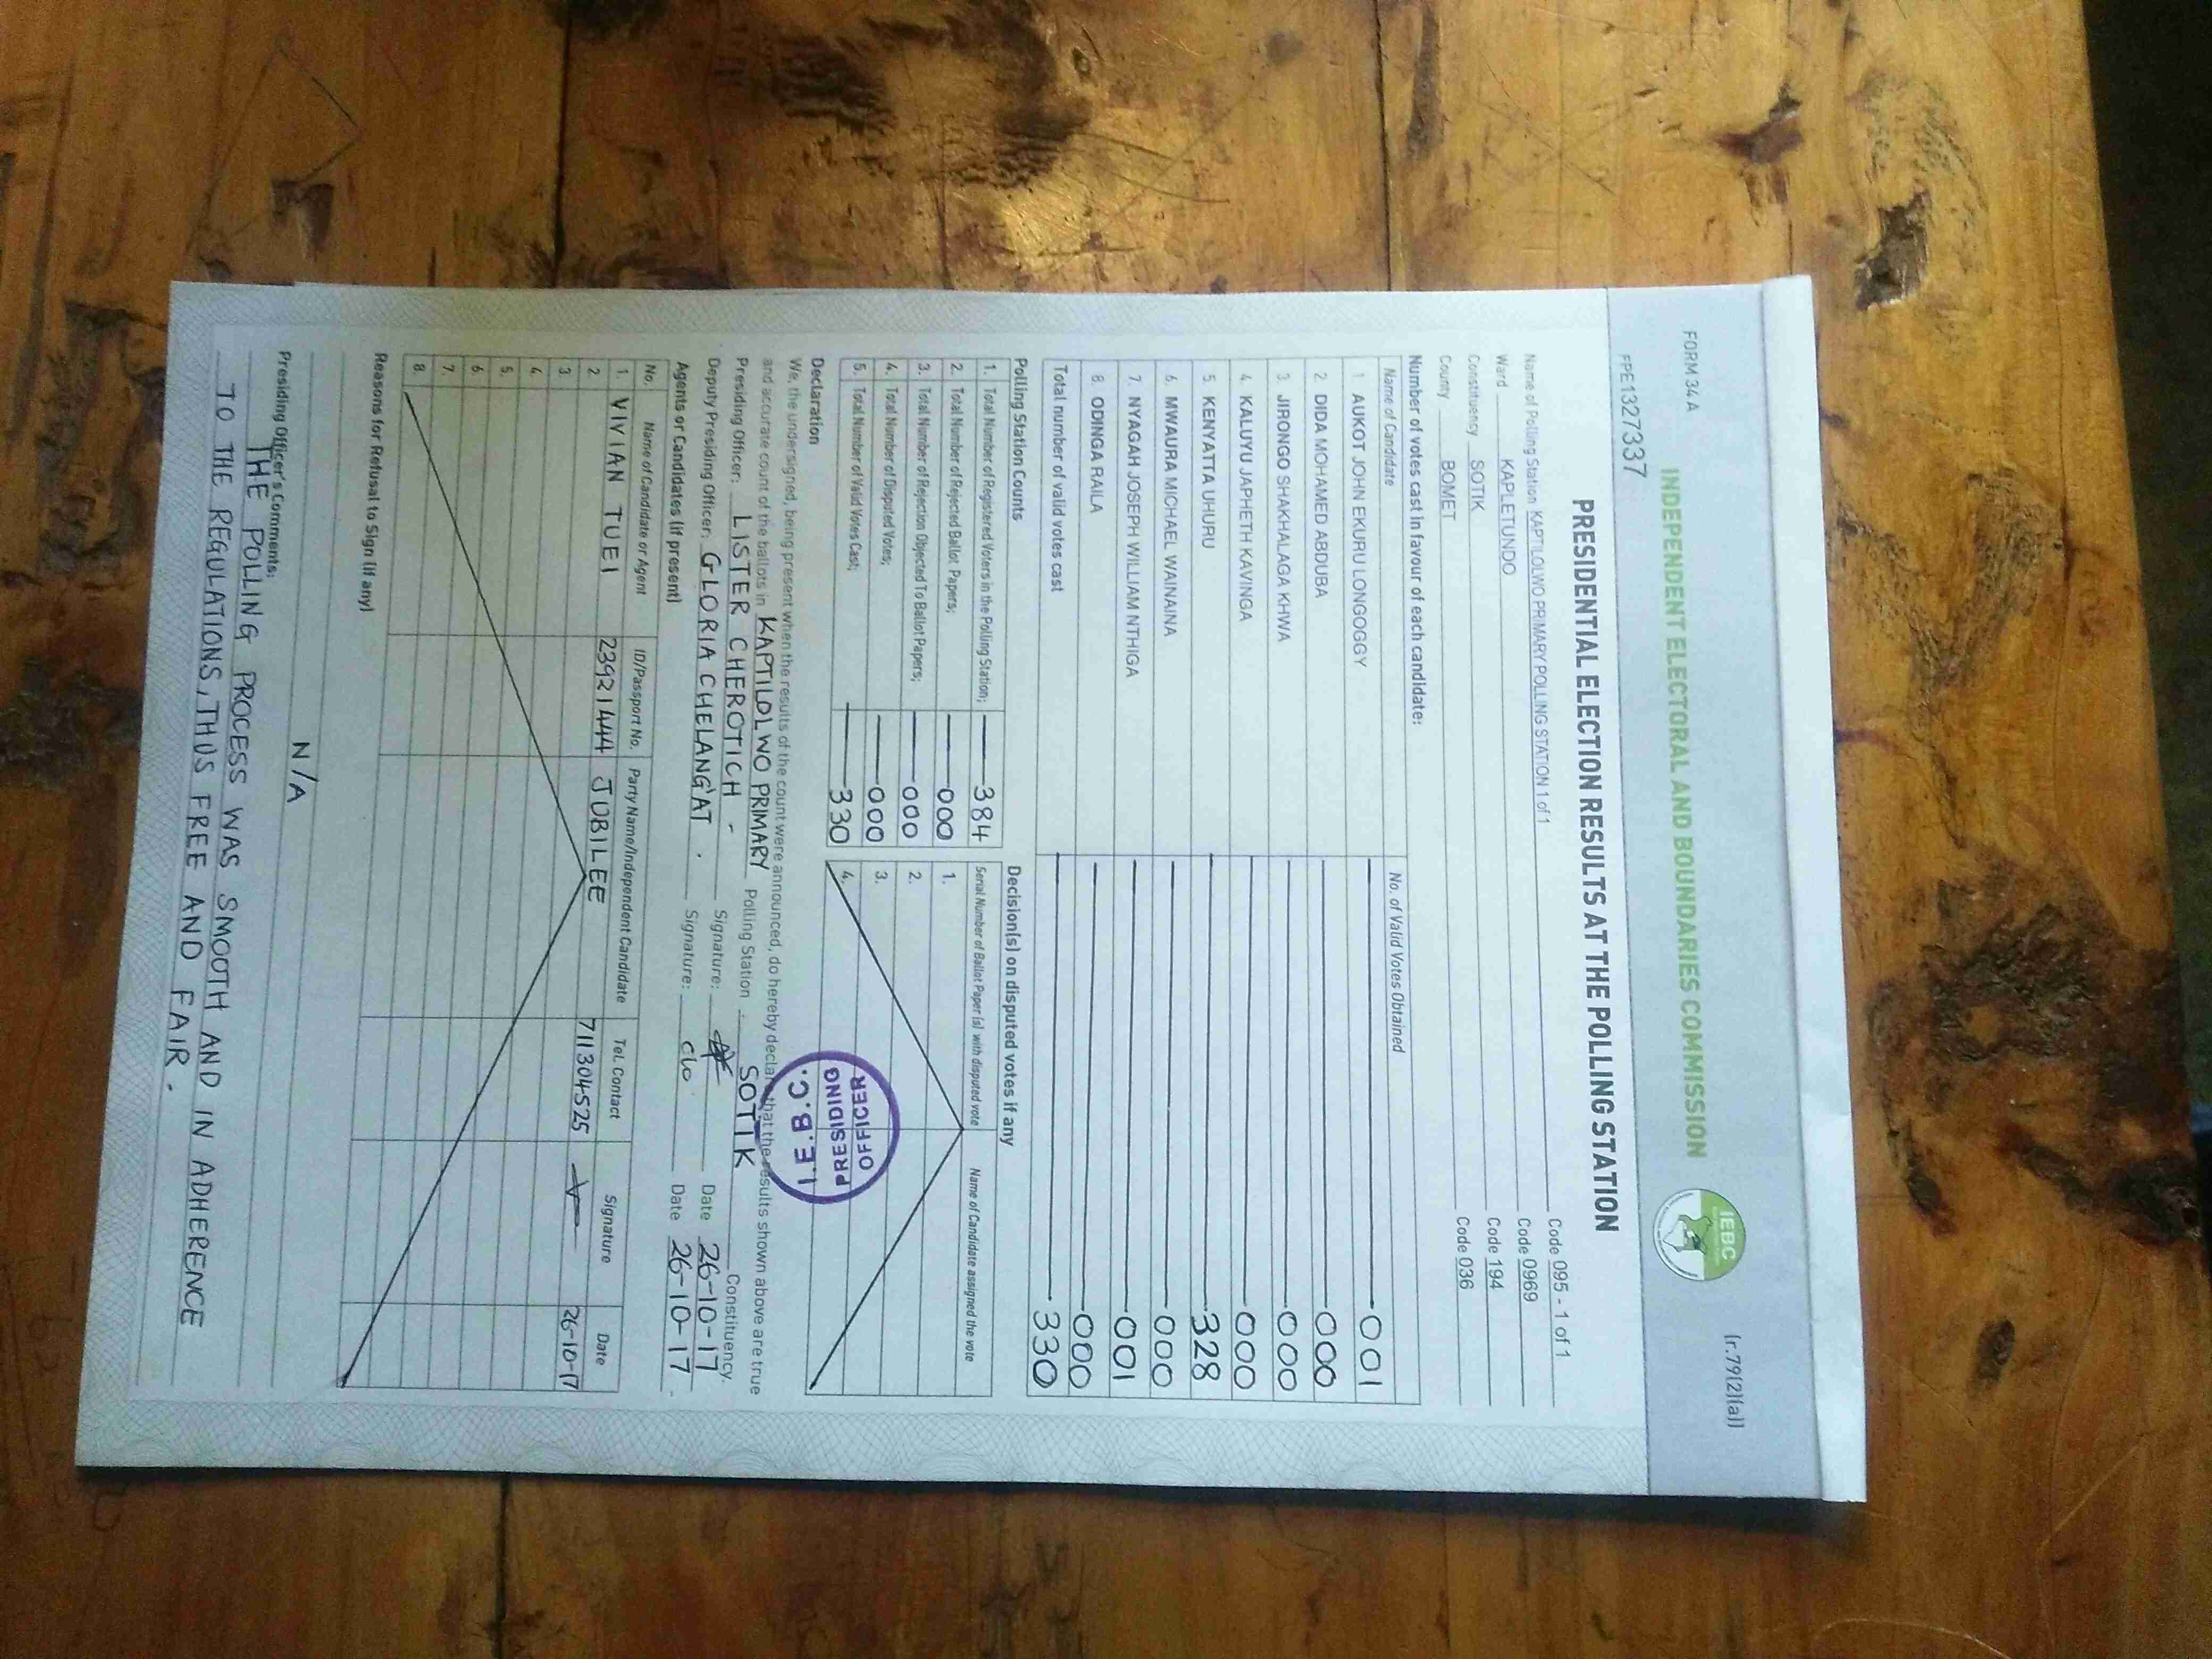 FORM 34A
(r.79(2)(a))
INDEPENDENT ELECTORAL AND BOUNDARIES COMMISSION
IEBC
FPE1327337
PRESIDENTIAL ELECTION RESULTS AT THE POLLING STATION
Name of Polling Station KAPTILOLWO PRIMARY POLLING STATION 1 of 1 Code 095 - 1 of 1
Ward KAPLETUNDO Code 0969
Constituency SOTIK Code 194
County BOMET Code 036
Number of votes cast in favour of each candidate:
Name of Candidate No. of Valid Votes Obtained
1. AUKOT JOHN EKURU LONGOGGY 001
2. DIDA MOHAMED ABDUBA 000
3. JIRONGO SHAKHALAGA KHWA 000
4. KALUYU JAPHETH KAVINGA 000
5. KENYATTA UHURU 328
6. MWAURA MICHAEL WAINAINA 000
7. NYAGAH JOSEPH WILLIAM NTHIGA 001
8. ODINGA RAILA 000
Total number of valid votes cast 330
Polling Station Counts
1. Total Number of Registered Voters in the Polling Station; 384
2. Total Number of Rejected Ballot Papers; 000
3. Total Number of Rejection Objected To Ballot Papers; 000
4. Total Number of Disputed Votes; 000
5. Total Number of Valid Votes Cast; 330
Decision(s) on disputed votes if any
Serial Number of Ballot Paper(s) with disputed vote Name of Candidate assigned the vote
1.
2.
3.
4.
I.E.B.C.
PRESIDING
OFFICER
Declaration
We, the undersigned, being present when the results of the count were announced, do hereby declare that the results shown above are true
and accurate count of the ballots in KAPTILOLWO PRIMARY Polling Station SOTIK Constituency.
Presiding Officer: LISTER CHEROTICH - Signature: Date 26-10-17
Deputy Presiding Officer: GLORIA CHELANG'AT . Signature: Date 26-10-17 .
Agents or Candidates (if present)
No. Name of Candidate or Agent ID/Passport No. Party Name/Independent Candidate Tel. Contact Signature Date
1. VIVIAN TUEI 23921444 JUBILEE 711304525 26-10-17
2.
3.
4.
5.
6.
7.
8.
Reasons for Refusal to Sign (if any)
N/A
Presiding Officer's Comments:
THE POLLING PROCESS WAS SMOOTH AND IN ADHERENCE
TO THE REGULATIONS, THUS FREE AND FAIR.